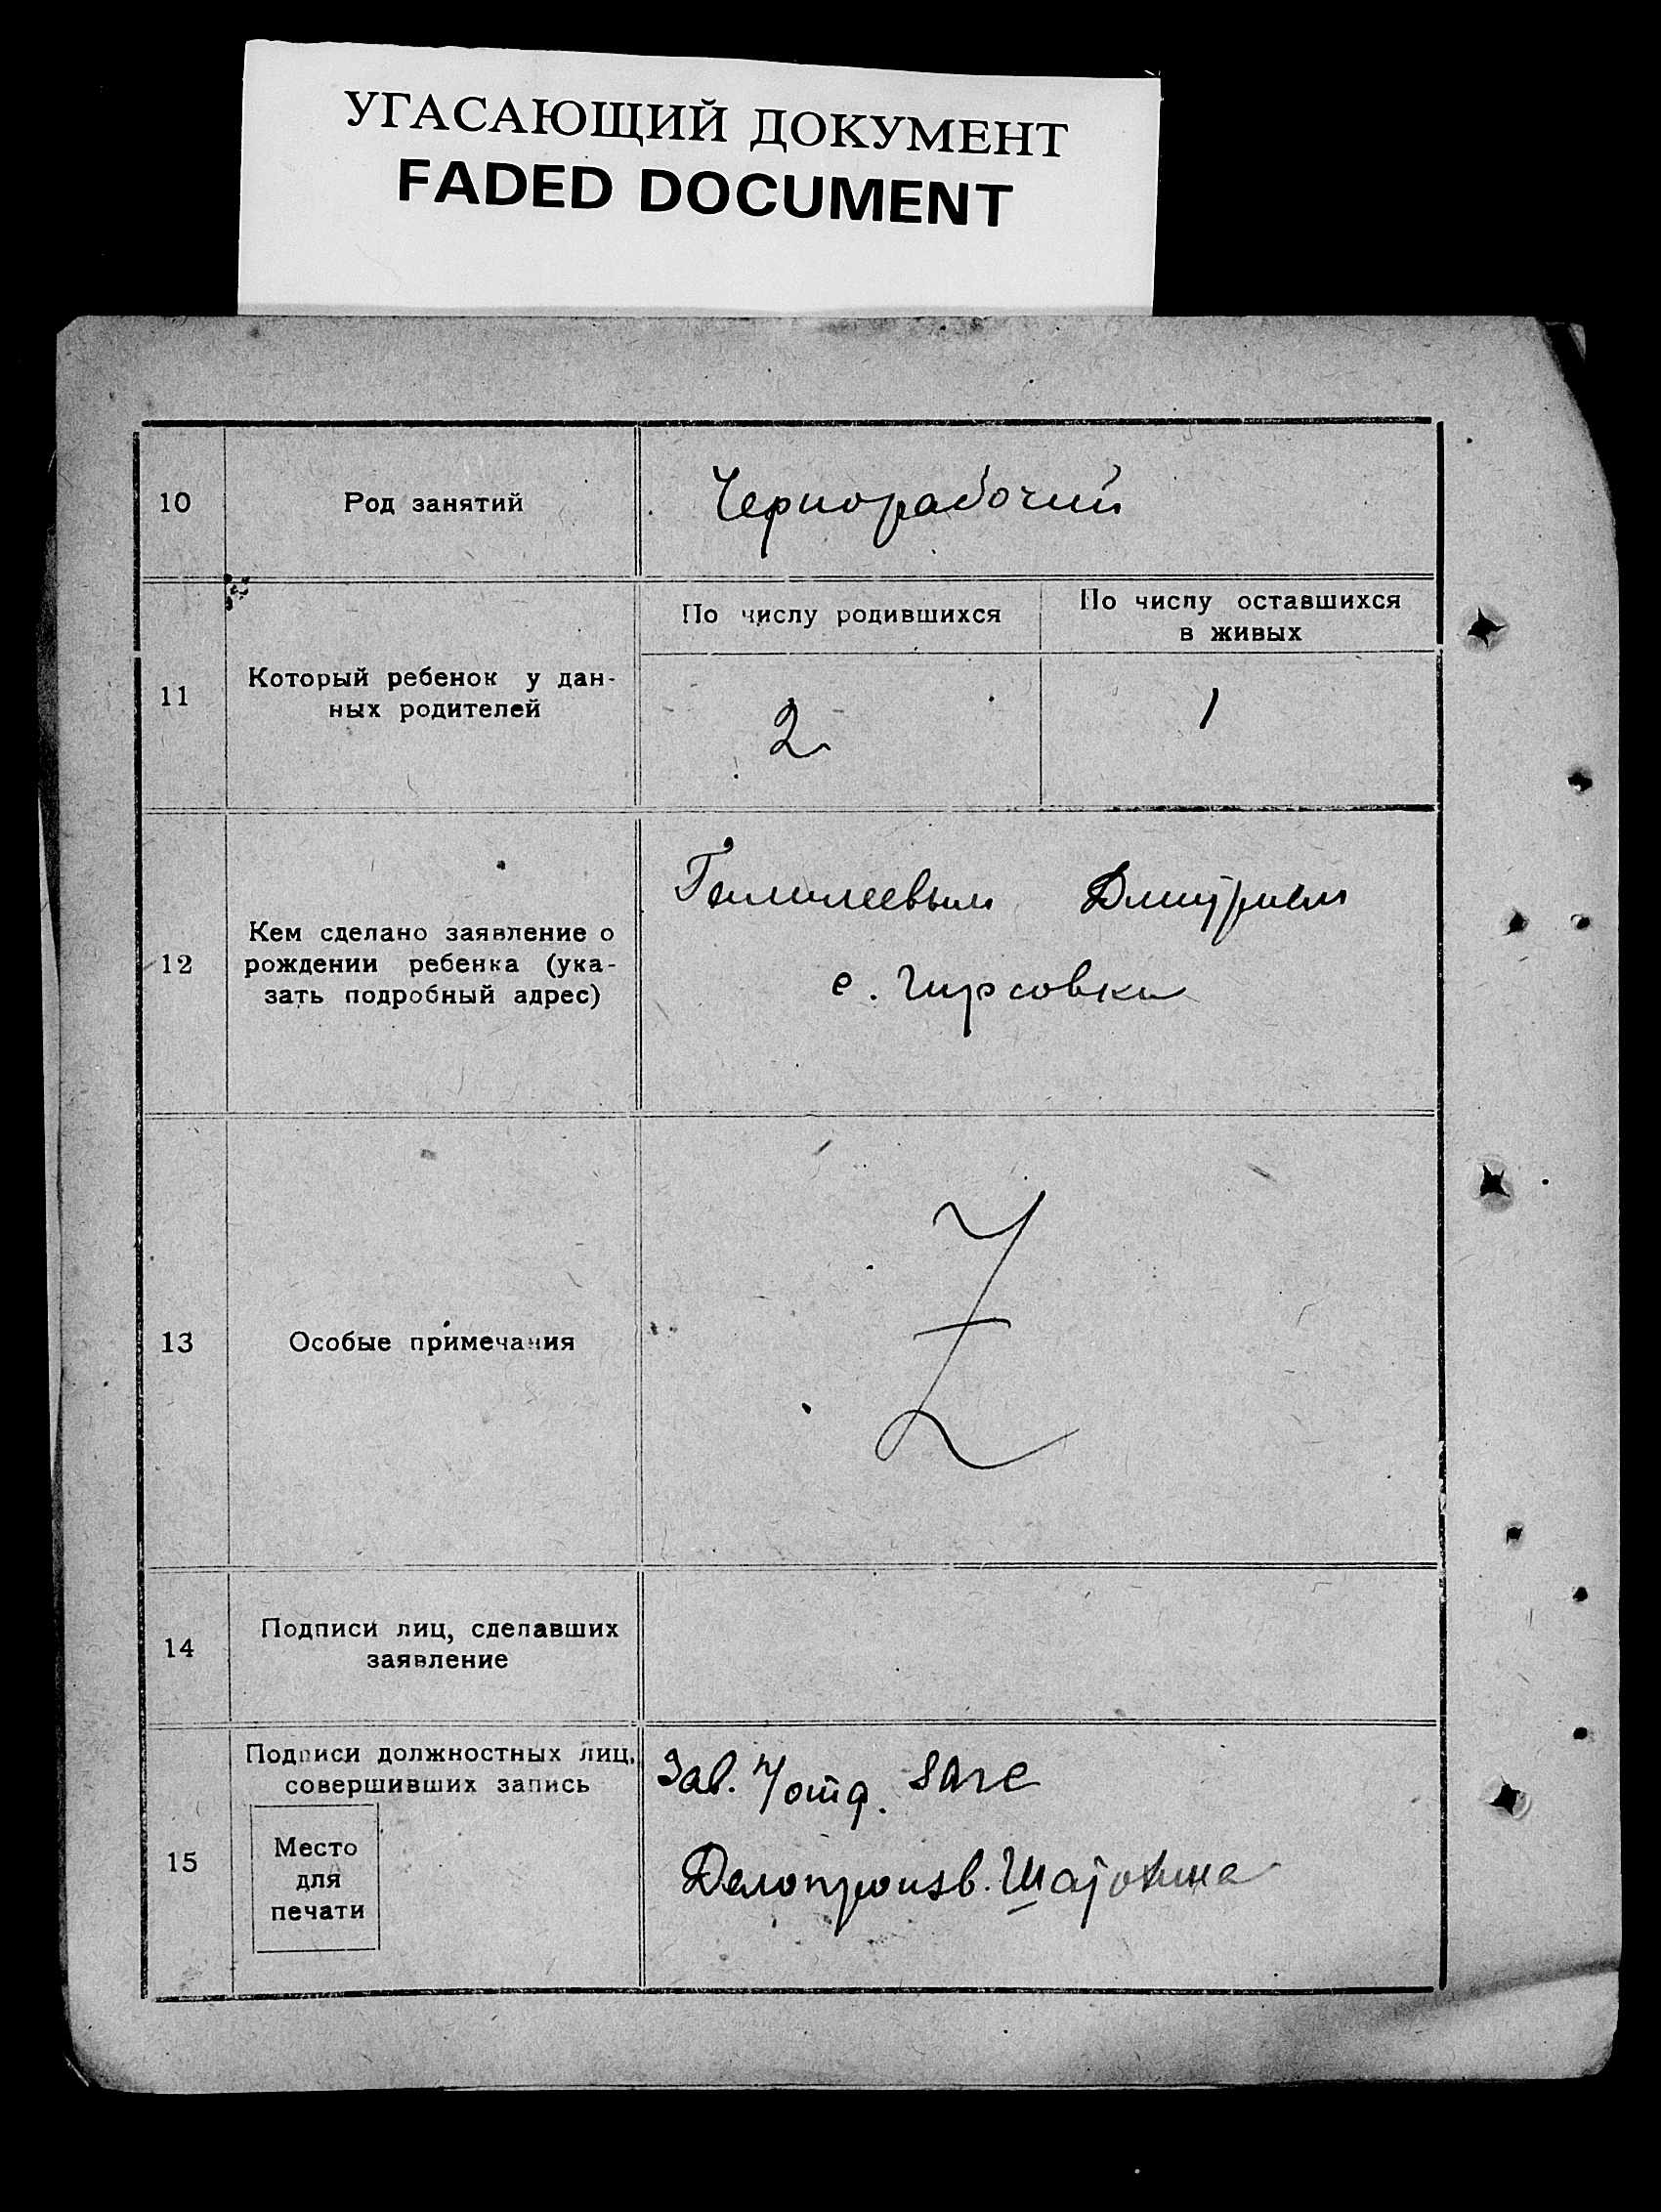 УГАСАЮЩИЙ ДОКУМЕНТ
FADED DOCUMENT
10
Род занятий
Чернорабочий
11
Который ребенок у дан-
ных родителей
По числу родившихся
По числу оставшихся
в живых
2
1
12
Кем сделано заявление о
рождении ребенка (ука-
зать подробный адрес)
Дмитрием
с. Чирсовки
13
Особые примечания
Z
14
Подписи лиц, сделавших
заявление
15
Подписи должностных лиц,
совершивших запись
Место
для
печати
Зав.
Делопроизв.